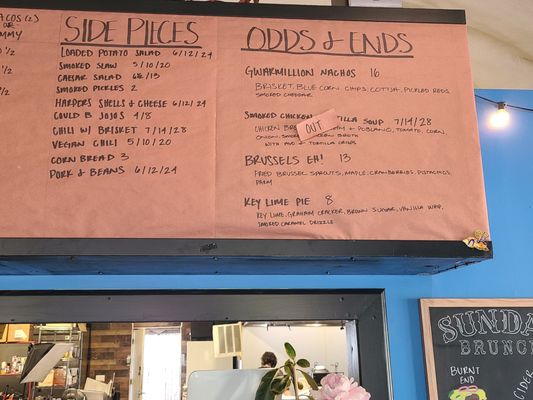 SIDE PIECES
LOADED POTATO SALAD 6/12/24
SMOKED SLAW 5/10/20
CAESAR SALAD
SMOKED PICKLES 2
HARPERS SHELLS & CHEESE 6/12/24
COULD B JOJOS 4/8
CHILI W/ BRISKET 7/14/28
VEGAN CHILI 5/10/20
CORN BREAD 3
PORK & BEANS 6/12/24
ODDS & ENDS
GWARMILLION NACHOS 16
BRISKET, BLUE CORN CHIPS, COTIJA, PICKLED REDS,
SMOKED CHEDDAR
SMOKED CHICKEN SOUP 7/14/28
OUT
CHICKEN & POBLANO, TOMATO, CORN,
ONION, BROTH
WITH AVO & TORTILLA CRISPS
BRUSSELS EH! 13
FRIED BRUSSEL SPROUTS, MAPLE, CRANBERRIES, PISTACHIOS,
PARM
KEY LIME PIE 8
KEY LIME, GRAHAM CRACKER, BROWN SUGAR, VANILLA WHIP,
SMOKED CARAMEL DRIZZLE
SUNDA
BRUNC
BURNT
END
CIDER